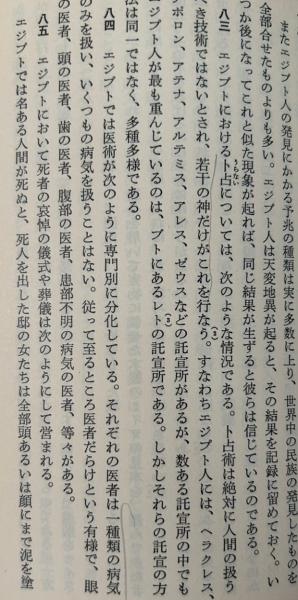 またエジプト人の発見にかかる予兆の種類は実に多数に上り、世界中の民族の発見したものを
全部合せたものよりも多い。エジプト人は天変地異が起ると、その結果を記録に留めておく。い
つか後になってこれと似た現象が起れば、同じ結果が生ずると彼らは信じているのである。
八三 エジプトにおける卜占については、次のような情況である。卜占術は絶対に人間の扱う
べき技術ではないとされ、若干の神だけがこれを行なう。すなわちエジプト人には、ヘラクレス、
アポロン、アテナ、アルテミス、アレス、ゼウスなどの託宣所があるが、数ある託宣所の中でも
エジプト人が最も重んじているのは、ブトにあるレトの託宣所である。しかしそれらの託宣の方
法は同一ではなく、多種多様である。
八四 エジプトでは医術が次のように専門別に分化している。それぞれの医者は一種類の病気
のみを扱い、いくつもの病気を扱うことはない。従って至るところ医者だらけという有様で、眼
の医者、頭の医者、歯の医者、腹部の医者、患部不明の病気の医者、等々がある。
八五 エジプトにおいて死者の哀悼の儀式や葬儀は次のようにして営まれる。
エジプトでは名ある人間が死ぬと、死人を出した邸の女たちは全部頭あるいは顔にまで泥を塗